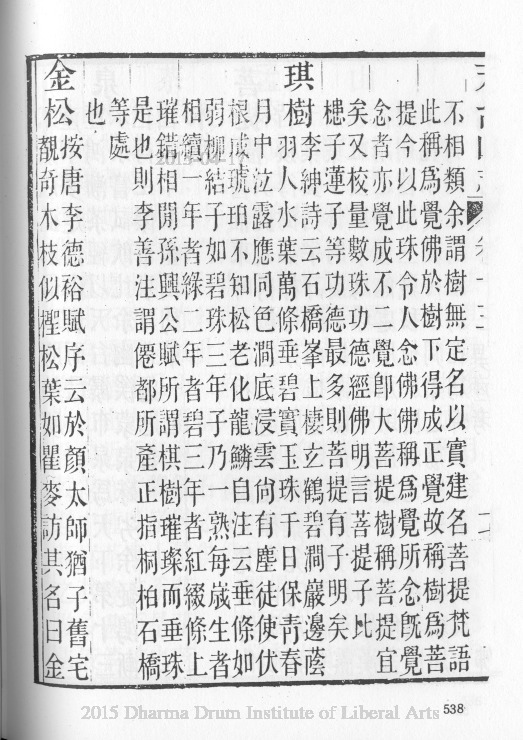 不相類余謂樹無定名以實建名菩提梵語
此稱爲覺佛於樹下得成正覺故稱樹爲菩
提今以此珠令人念佛佛稱爲覺所念旣覺
念者亦覺成不二覺卽大菩提樹稱菩提宜
矣又校量數珠功德經佛明言菩提子此
槵子蓮子等功德最多則菩提有子明矣
琪樹李紳詩云石橋峯上棲玄鶴碧澗巖邊蔭
羽人水葉萬條垂碧實玉珠千日保靑春
月中泣露應同色澗底浸雲尙有塵徒使伏
根成琥珀不知松老化龍鱗自注云垂條如
弱柳結子如碧珠三年子乃一熟每歲生者
相續一年者綠二年者碧三年者紅綴條上
璀錯相閒孫興公賦所謂棋樹璀璨而垂珠
是也則李善注謂僊都所產正指桐柏石橋
等處
也
金松按唐李德裕賦序云於顏太師猶子舊宅
覩奇木枝似檉松葉如瞿麥訪其名曰金
538
2015 Dharma Drum Institute of Liberal Arts